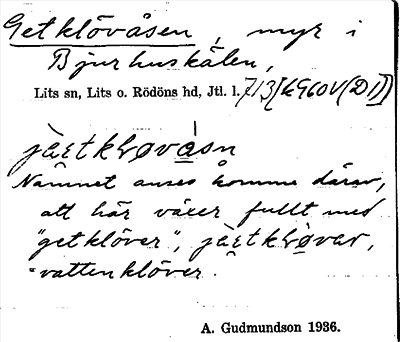 Getklövåsen, myr i
Bjurhuskälen,
Lits sn, Lits o. Rödöns hd, Jtl. l. 713[k960V(DI)]
jàɛtkl̥øvàsn
Namnet anses komma därav,
att här växer fullt med
"getklöver", jàɛtkl̥øvar,
=vattenklöver.
A. Gudmundson 1936.